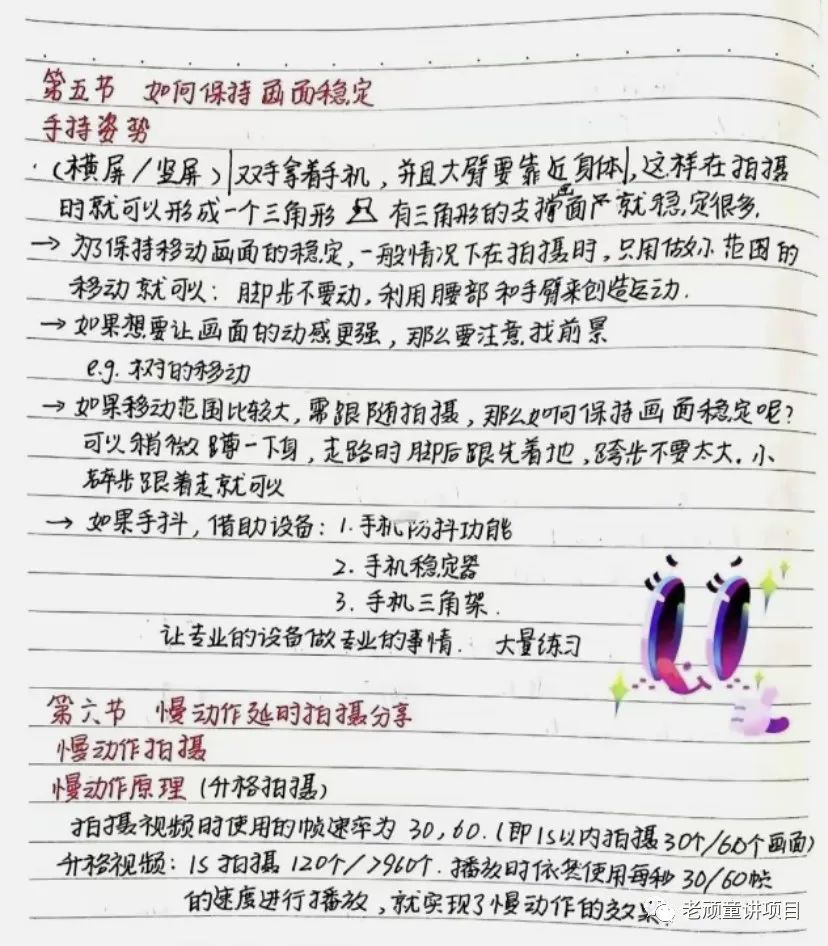 第五节 如何保持画面稳定
手持姿势
·(横屏/竖屏)|双手拿着手机,并且大臂要靠近身体|,这样在拍摄
时就可以形成一个三角形 有三角形的支撑画面就稳定很多.
→ 为了保持移动画面的稳定,一般情况下在拍摄时,只用做小范围的
移动就可以: 脚步不要动,利用腰部和手臂来创造运动.
→ 如果想要让画面的动感更强,那么要注意找前景
e.g. 树的移动
→ 如果移动范围比较大,需跟随拍摄,那么如何保持画面稳定呢?
可以稍微蹲一下身,走路时脚后跟先着地,跨步不要太大.小
碎步跟着走就可以
→ 如果手抖,借助设备: 1.手机防抖功能
2.手机稳定器
3.手机三角架.
让专业的设备做专业的事情. 大量练习
第六节 慢动作延时拍摄分享
慢动作拍摄
慢动作原理(升格拍摄)
拍摄视频时使用的帧速率为 30,60.(即1s以内拍摄30个/60个画面)
升格视频: 1s拍摄120个/>960个.播放时依然使用每秒30/60帧
的速度进行播放,就实现了慢动作的效果.
老顽童讲项目